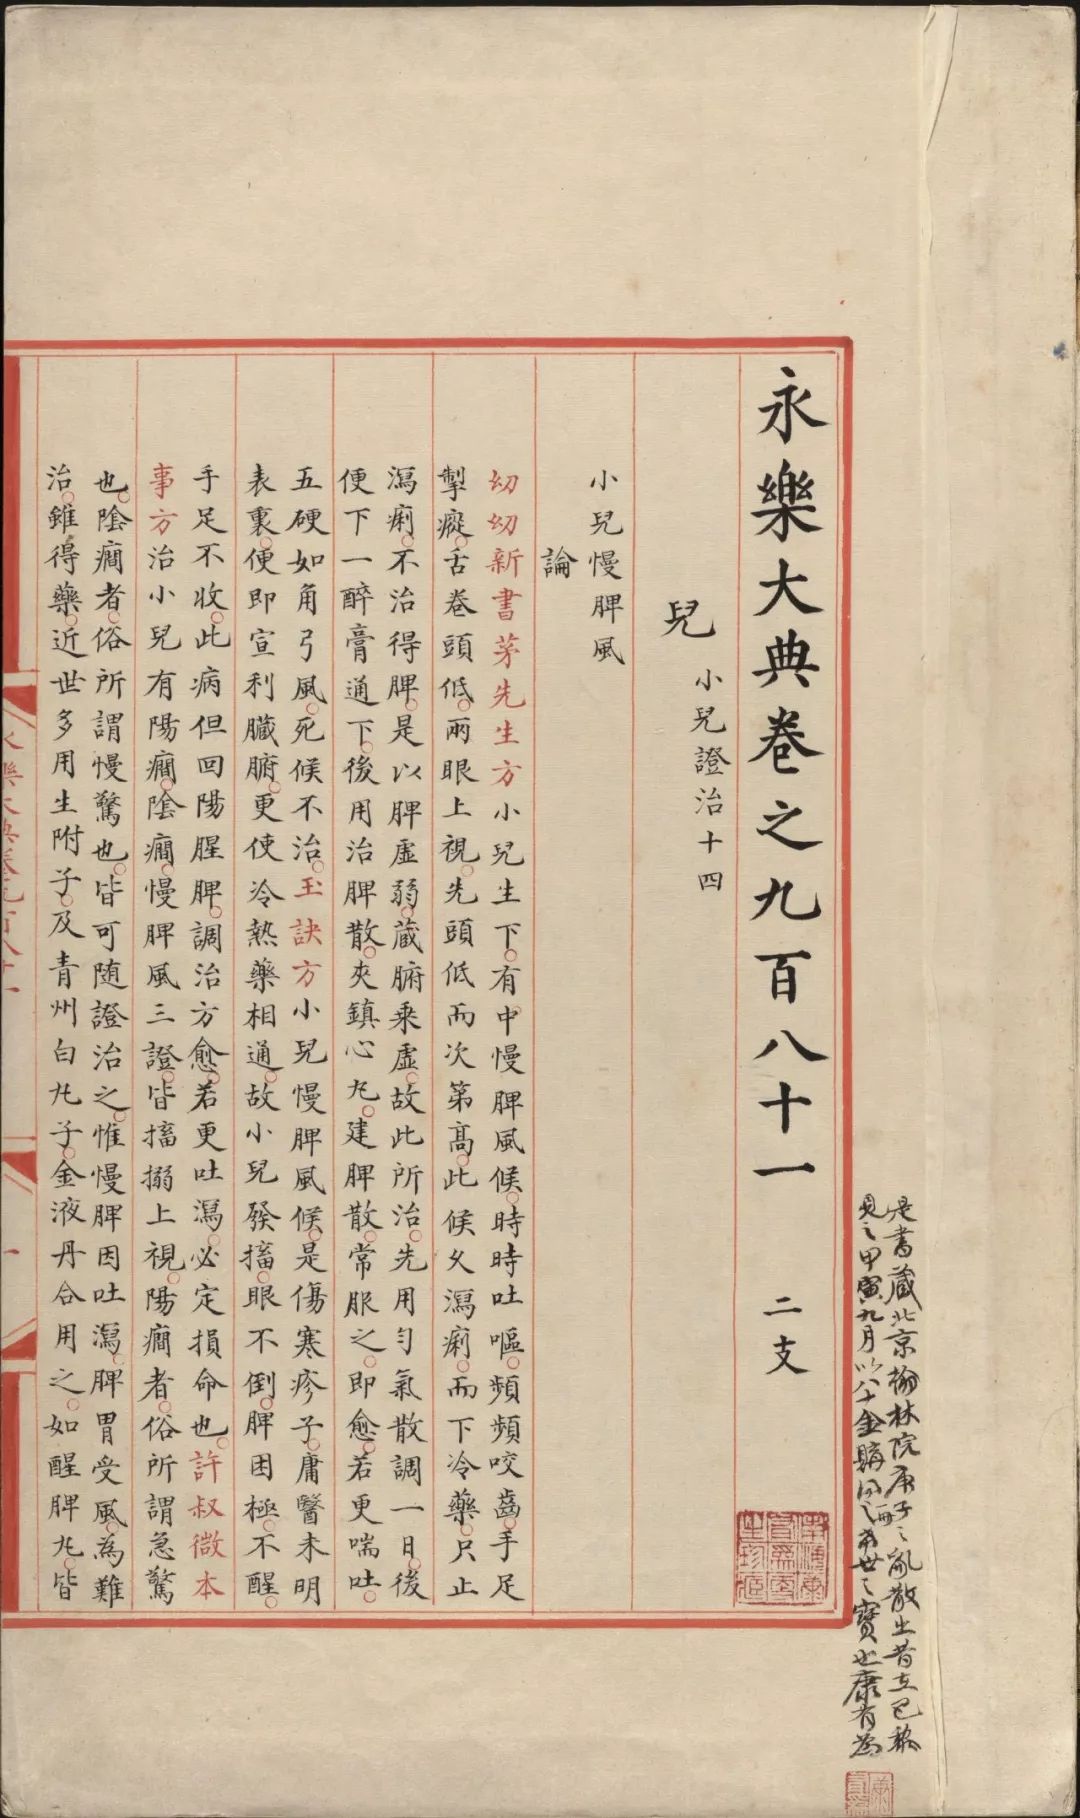 永樂大典卷之九百八十一 二支
兒 小兒證治十四
小兒慢脾風
論
幼幼新書茅先生方小兒生下有中慢脾風候時時吐嘔頻頻咬齒手足
掣瘲舌卷頭低兩眼上視先頭低而次第高此候乆瀉痢而下冷藥只止
瀉痢不治得脾是以脾虛弱蔵腑乘虛故此所治先用匀氣散調一日後
便下一醉膏通下後用治脾散夾鎮心丸建脾散常服之即愈若更喘吐
五硬如角弓風死候不治玉訣方小兒慢脾風候是傷寒疹子庸醫未明
表裏便即宣利臟腑更使冷熱藥相通故小兒發搐眼不倒脾困極不醒
手足不收此病但回陽醒脾調治方愈若更吐瀉必定損命也許叔微本
事方治小兒有陽癎陰癎慢脾風三證皆搐搦上視陽癎者俗所謂急驚
也陰癎者俗所謂慢驚也皆可隨證治之惟慢脾因吐瀉脾胃受風為難
治雖得藥近世多用生附子及青州白丸子金液丹合用之如醒脾丸皆
是書藏北京翰林院庚子之亂散出昔在巴黎
見之甲寅九月以八十金購同之希世之寶也康有為